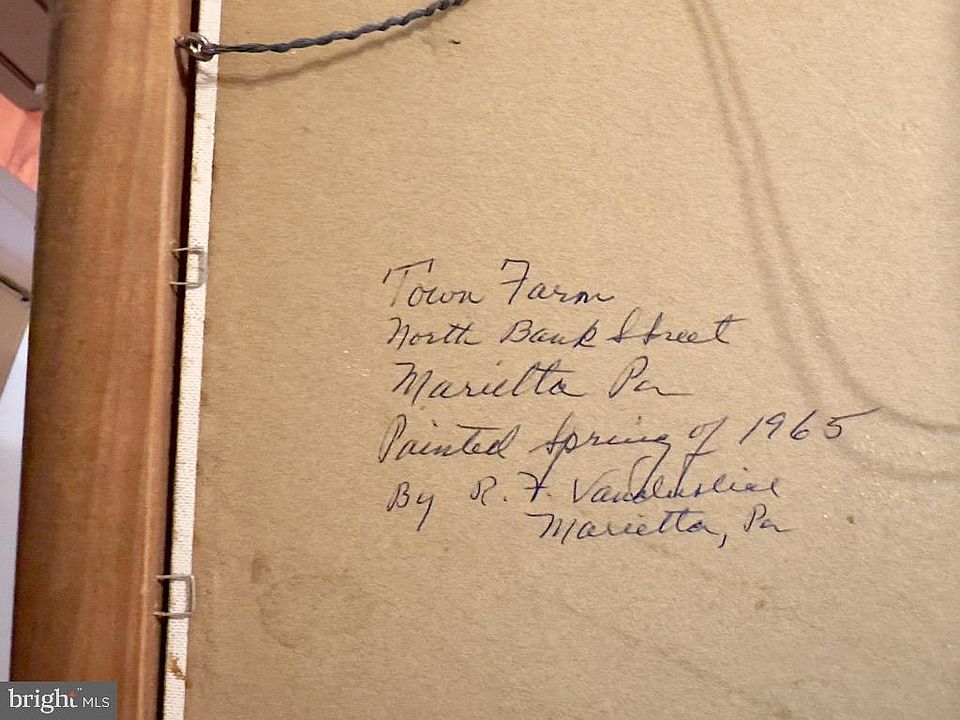 Town Farm
North Bank Street
Marietta Pa
Painted Spring of 1965
By R. F.
Marietta, Pa
bright MLS